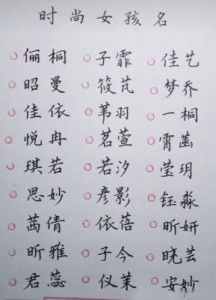 时尚女孩名
俪桐 子霏 佳艺
昭曼 筱芃 梦乔
佳依 苇羽 一桐
悦冉 茗萱 霄菡
琪若 若汐 莹玥
思妙 彦影 钰淼
茜倩 依蓓 昕妍
昕雅 子今 晓芸
君蕊 仪茉 安妙